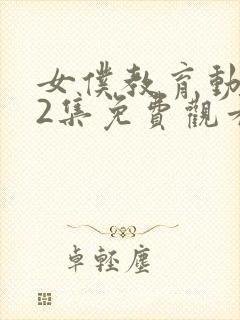 女僕教育動
2集免費觀看
卓輕塵